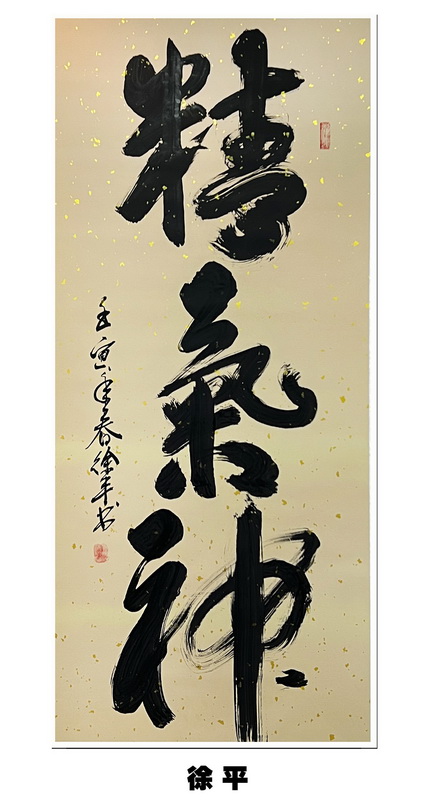 精氣神
壬寅年春徐平书
徐平